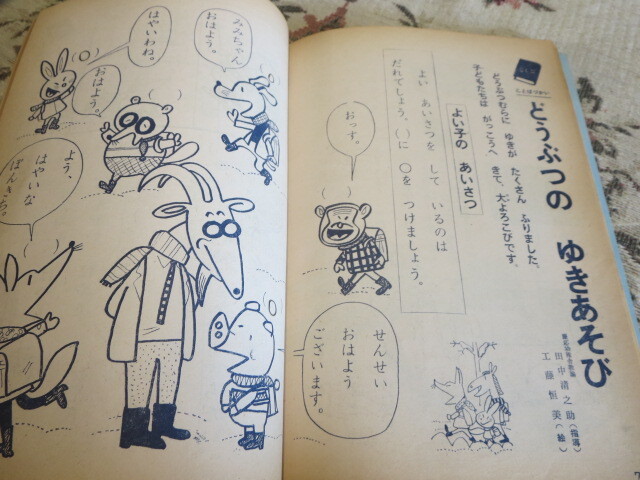 ことばづかい
どうぶつの ゆきあそび
田中清之助（指導）
工藤恒美（絵）
どうぶつむらに ゆきが たくさん ふりました。
子どもたちは がっこうへ きて、大よろこびです。
よい子の あいさつ
よい あいさつを して いるのは
だれでしょう。（ ）に ○を つけましょう。
おっす。
せんせい
おはよう
ございます。
みみちゃん
おはよう。
はやいわね。
おはよう。
よう、
はやいな